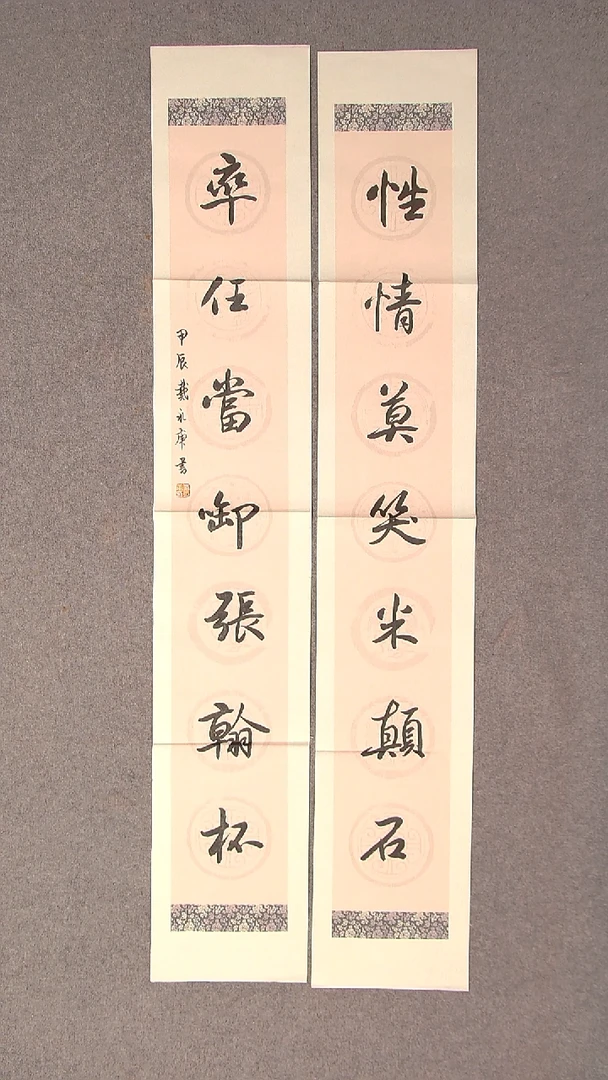 性情莫笑米顛石
率任當啣張翰杯
甲辰戴永庚書